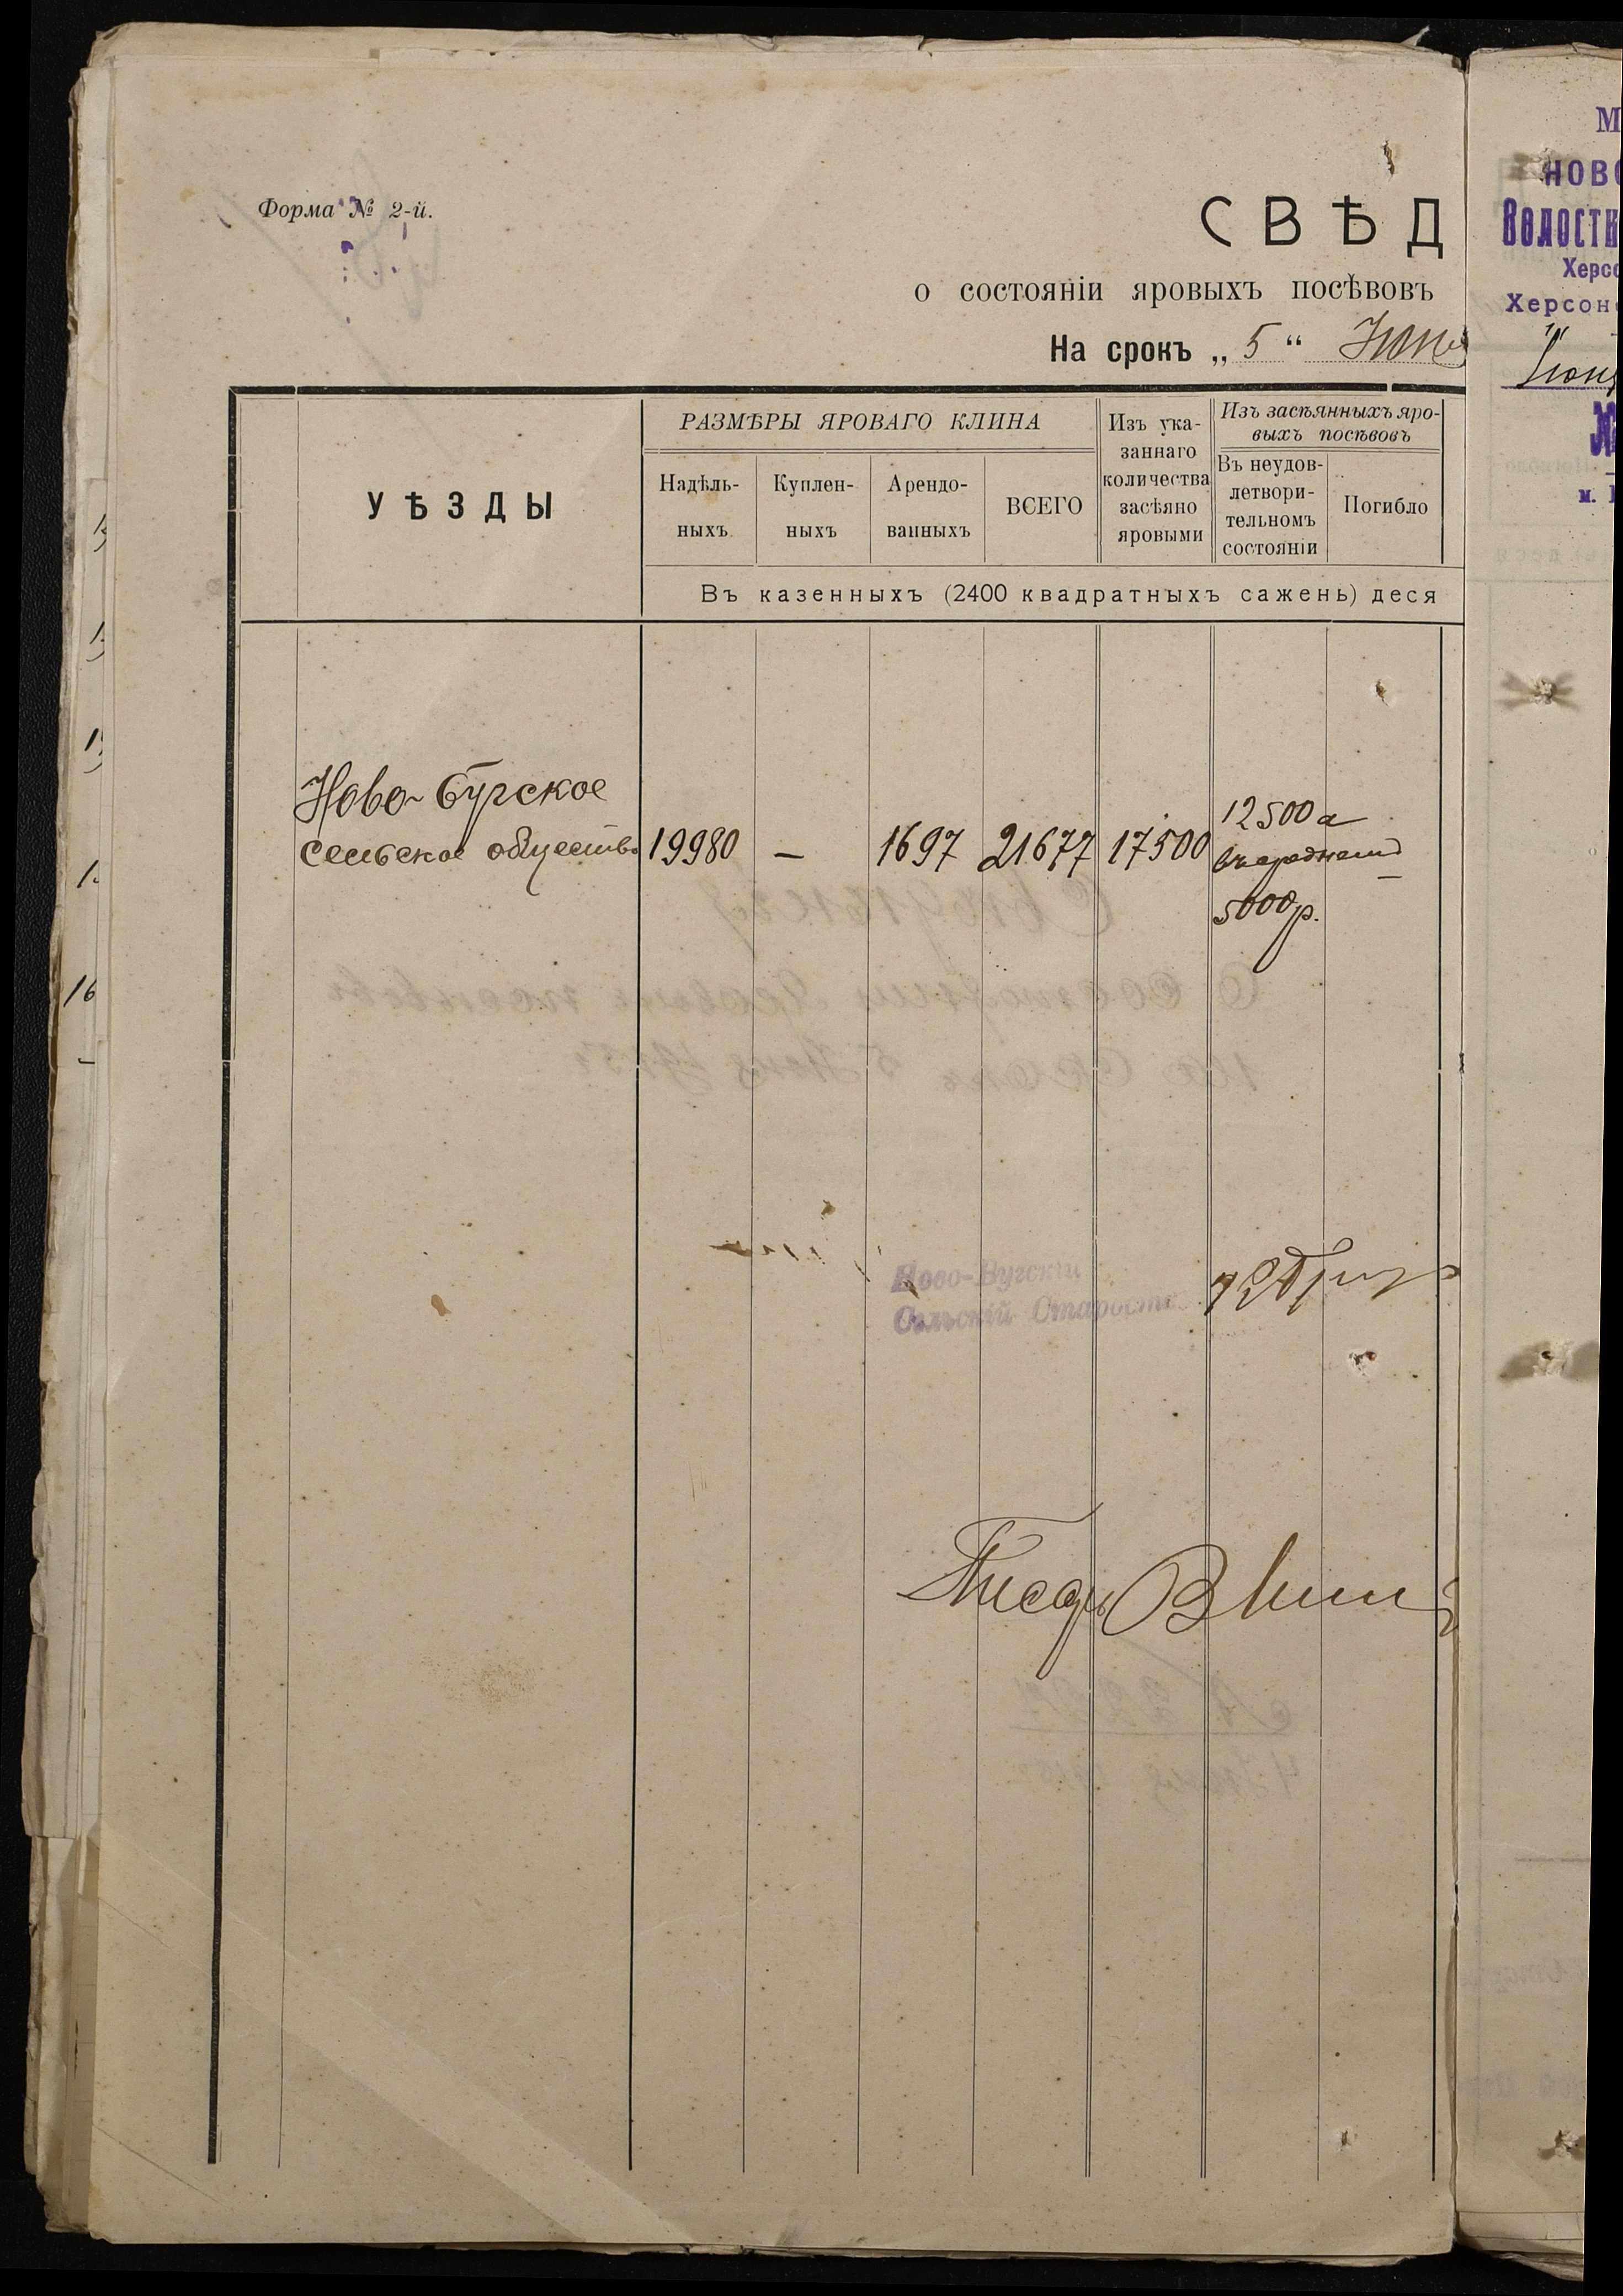 Форма № 2-й.
СВѢД
о состояніи яровыхъ посѣвовъ
На срокъ „ 5 “ Іюня
УѢЗДЫ
РАЗМѢРЫ ЯРОВАГО КЛИНА
Надѣль-
ныхъ
Куплен-
ныхъ
Арендо-
ванныхъ
ВСЕГО
Изъ ука-
заннаго
количества
засѣяно
яровыми
Изъ засѣянныхъ яро-
выхъ посѣвовъ
Въ неудов-
летвори-
тельномъ
состояніи
Погибло
Въ казенныхъ (2400 квадратныхъ сажень) деся
Ново-Бугское
сельское общество 19980 — 1697 21677 17500
12500 а
5000 р.
—
Ново-Бугскій
Сельскій Староста
Писарь
М
НОВО
Волостн
Херсо
Херсон
Іюня
№
м.